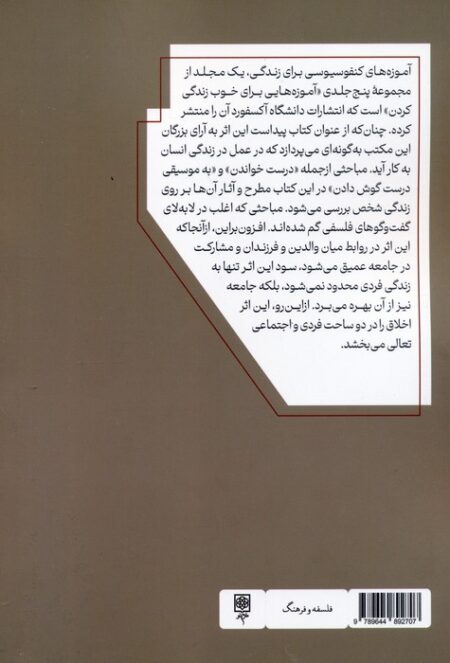 آموزه‌های کنفوسیوسی برای زندگی، یک مجلد از
مجموعهٔ پنج‌جلدی «آموزه‌هایی برای خوب زندگی
کردن» است که انتشارات دانشگاه آکسفورد آن را منتشر
کرده. چنان‌که از عنوان کتاب پیداست این اثر به آرای بزرگان
این مکتب به‌گونه‌ای می‌پردازد که در عمل در زندگی انسان
به کار آید. مباحثی ازجمله «درست خواندن» و «به موسیقی
درست گوش دادن» در این کتاب مطرح و آثار آن‌ها بر روی
زندگی شخص بررسی می‌شود. مباحثی که اغلب در لابه‌لای
گفت‌وگوهای فلسفی گم شده‌اند. افزون‌براین، ازآنجاکه
این اثر در روابط میان والدین و فرزندان و مشارکت
در جامعه عمیق می‌شود، سود این اثر تنها به
زندگی فردی محدود نمی‌شود، بلکه جامعه
نیز از آن بهره می‌برد. ازاین‌رو، این اثر
اخلاق را در دو ساحت فردی و اجتماعی
تعالی می‌بخشد.
فلسفه و فرهنگ
9 789644 892707